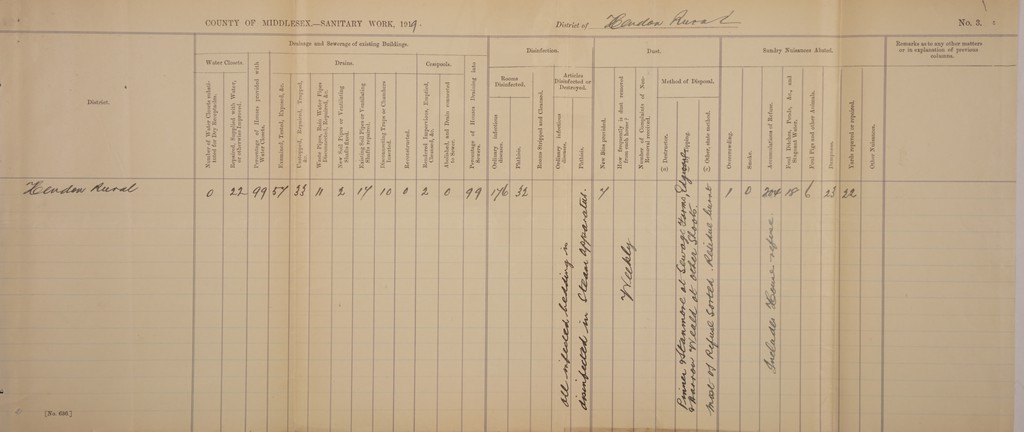 COUNTY OF MIDDLESEX.—SANITARY WORK, 1919.
District of Hendon Rural
No. 3.
District.
Drainage and Sewerage of existing Buildings.
Disinfection.
Dust.
Sundry Nuisances Abated.
Remarks as to any other matters
or in explanation of previous
columns.
Water Closets.
Drains.
Cesspools.
Rooms
Disinfected.
Articles
Disinfected or
Destroyed.
Method of Disposal.
Number of Water Closets substituted for Dry Receptacles.
Repaired, Supplied with Water, or otherwise Improved.
Percentage of Houses provided with Water Closets.
Examined, Tested, Exposed, &c.
Unstopped, Repaired, Trapped, &c.
Waste Pipes, Rain Water Pipes Disconnected, Repaired, &c.
New Soil Pipes or Ventilating Shafts fixed.
Existing Soil Pipes or Ventilating Shafts repaired.
Disconnecting Traps or Chambers Inserted.
Reconstructed.
Rendered Impervious, Emptied, Cleansed, &c.
Abolished, and Drain connected to Sewer.
Percentage of Houses Draining into Sewers.
Ordinary infectious diseases.
Phthisis.
Rooms Stripped and Cleansed.
Ordinary infectious diseases.
Phthisis.
New Bins provided.
How frequently is dust removed from each house?
Number of Complaints of Non-Removal received.
Destructor.
Tipping.
Other, state method.
Overcrowding.
Smoke.
Accumulations of Refuse.
Foul Ditches, Ponds, &c., and Stagnant Water.
Foul Pigs and other Animals.
Dampness.
Yards repaved or repaired.
Other Nuisances.
Hendon Rural 0 22 99 57 33 11 2 17 10 0 2 0 99 176 32 7 1 0 204 18 6 23 22
All infected bedding in
disinfected in Steam apparatus.
Weekly
Pinner & Stanmore at Sewage Farms,
& Harrow Weald at other Shoots.
Most of Refuse Sorted. Residue burnt
Includes House-refuse.
[No. 636.]